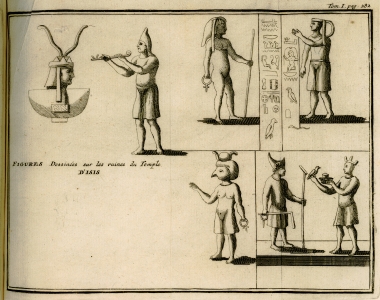 Tom. I. pag. 282
FIGURES Dessinées sur les ruines du Temple
D'ISIS